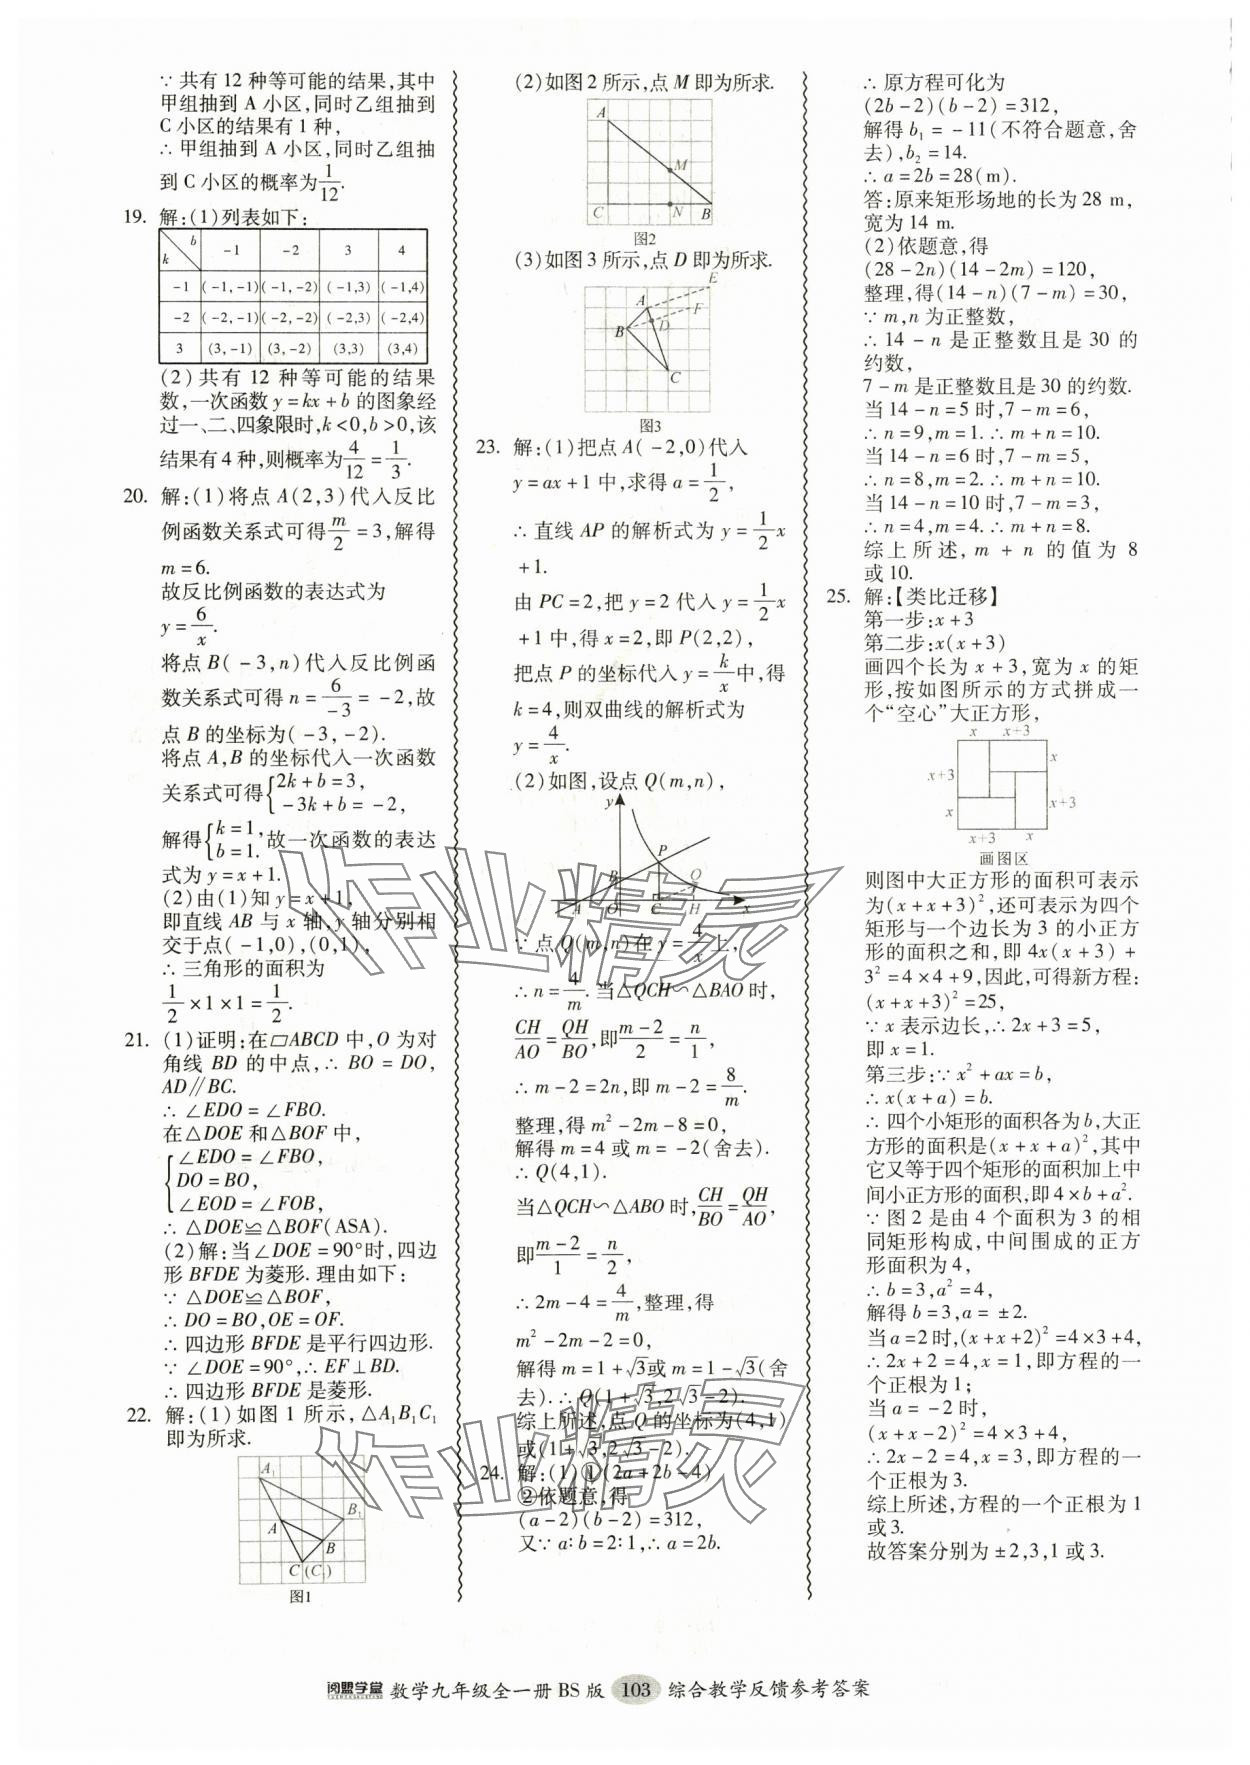 ∵共有12种等可能的结果,其中
甲组抽到A小区,同时乙组抽到
C小区的结果有1种,
∴甲组抽到A小区,同时乙组抽
到C小区的概率为1/12.
19. 解:(1)列表如下:
b -1 -2 3 4
k
-1 (-1,-1) (-1,-2) (-1,3) (-1,4)
-2 (-2,-1) (-2,-2) (-2,3) (-2,4)
3 (3,-1) (3,-2) (3,3) (3,4)
(2)共有12种等可能的结果
数,一次函数y=kx+b的图象经
过一、二、四象限时,k<0,b>0,该
结果有4种,则概率为4/12=1/3.
20. 解:(1)将点A(2,3)代入反比
例函数关系式可得m/2=3,解得
m=6.
故反比例函数的表达式为
y=6/x.
将点B(-3,n)代入反比例函
数关系式可得n=6/-3=-2,故
点B的坐标为(-3,-2).
将点A,B的坐标代入一次函数
关系式可得{2k+b=3,
-3k+b=-2,
解得{k=1,故一次函数的表达
b=1.
式为y=x+1.
(2)由(1)知y=x+1,
即直线AB与x轴,y轴分别相
交于点(-1,0),(0,1),
∴三角形的面积为
1/2×1×1=1/2.
21. (1)证明:在▱ABCD中,O为对
角线BD的中点,∴BO=DO,
AD∥BC.
∴∠EDO=∠FBO.
在△DOE和△BOF中,
{∠EDO=∠FBO,
DO=BO,
∠EOD=∠FOB,
∴△DOE≌△BOF(ASA).
(2)解:当∠DOE=90°时,四边
形BFDE为菱形.理由如下:
∵△DOE≌△BOF,
∴DO=BO,OE=OF.
∴四边形BFDE是平行四边形.
∵∠DOE=90°,∴EF⊥BD.
∴四边形BFDE是菱形.
22. 解:(1)如图1所示,△A₁B₁C₁
即为所求.
A₁
B₁
A
B
C(C₁)
图1
(2)如图2所示,点M即为所求.
A
M
C N B
图2
(3)如图3所示,点D即为所求.
E
A F
B D
C
图3
23. 解:(1)把点A(-2,0)代入
y=ax+1中,求得a=1/2,
∴直线AP的解析式为y=1/2x
+1.
由PC=2,把y=2代入y=1/2x
+1中,得x=2,即P(2,2),
把点P的坐标代入y=k/x中,得
k=4,则双曲线的解析式为
y=4/x.
(2)如图,设点Q(m,n),
y
P
B Q
A O C H x
∵点Q(m,n)在y=4/x上,
∴n=4/m.当△QCH∽△BAO时,
CH/AO=QH/BO,即m-2/2=n/1,
∴m-2=2n,即m-2=8/m.
整理,得m²-2m-8=0,
解得m=4或m=-2(舍去).
∴Q(4,1).
当△QCH∽△ABO时,CH/BO=QH/AO,
即m-2/1=n/2,
∴2m-4=4/m,整理,得
m²-2m-2=0,
解得m=1+√3或m=1-√3(舍
去).∴Q(1+√3,2√3-2).
综上所述,点Q的坐标为(4,1)
或(1+√3,2√3-2).
24. 解:(1)①(2a+2b-4)
②依题意,得
(a-2)(b-2)=312,
又∵a:b=2:1,∴a=2b.
∴原方程可化为
(2b-2)(b-2)=312,
解得b₁=-11(不符合题意,舍
去),b₂=14.
∴a=2b=28(m).
答:原来矩形场地的长为28 m,
宽为14 m.
(2)依题意,得
(28-2n)(14-2m)=120,
整理,得(14-n)(7-m)=30,
∵m,n为正整数,
∴14-n是正整数且是30的
约数,
7-m是正整数且是30的约数.
当14-n=5时,7-m=6,
∴n=9,m=1.∴m+n=10.
当14-n=6时,7-m=5,
∴n=8,m=2.∴m+n=10.
当14-n=10时,7-m=3,
∴n=4,m=4.∴m+n=8.
综上所述,m+n的值为8
或10.
25. 解:【类比迁移】
第一步:x+3
第二步:x(x+3)
画四个长为x+3,宽为x的矩
形,按如图所示的方式拼成一
个“空心”大正方形,
x x+3
x+3 x
x x+3
x+3 x
画图区
则图中大正方形的面积可表示
为(x+x+3)²,还可表示为四个
矩形与一个边长为3的小正方
形的面积之和,即4x(x+3)+
3²=4×4+9,因此,可得新方程:
(x+x+3)²=25,
∵x表示边长,∴2x+3=5,
即x=1.
第三步:∵x²+ax=b,
∴x(x+a)=b.
∴四个小矩形的面积各为b,大正
方形的面积是(x+x+a)²,其中
它又等于四个矩形的面积加上中
间小正方形的面积,即4×b+a².
∵图2是由4个面积为3的相
同矩形构成,中间围成的正方
形面积为4,
∴b=3,a²=4,
解得b=3,a=±2.
当a=2时,(x+x+2)²=4×3+4,
∴2x+2=4,x=1,即方程的一
个正根为1;
当a=-2时,
(x+x-2)²=4×3+4,
∴2x-2=4,x=3,即方程的一
个正根为3.
综上所述,方程的一个正根为1
或3.
故答案分别为±2,3,1或3.
作业精灵
作业精灵
阅盟学堂 数学九年级全一册 BS版 103 综合教学反馈参考答案